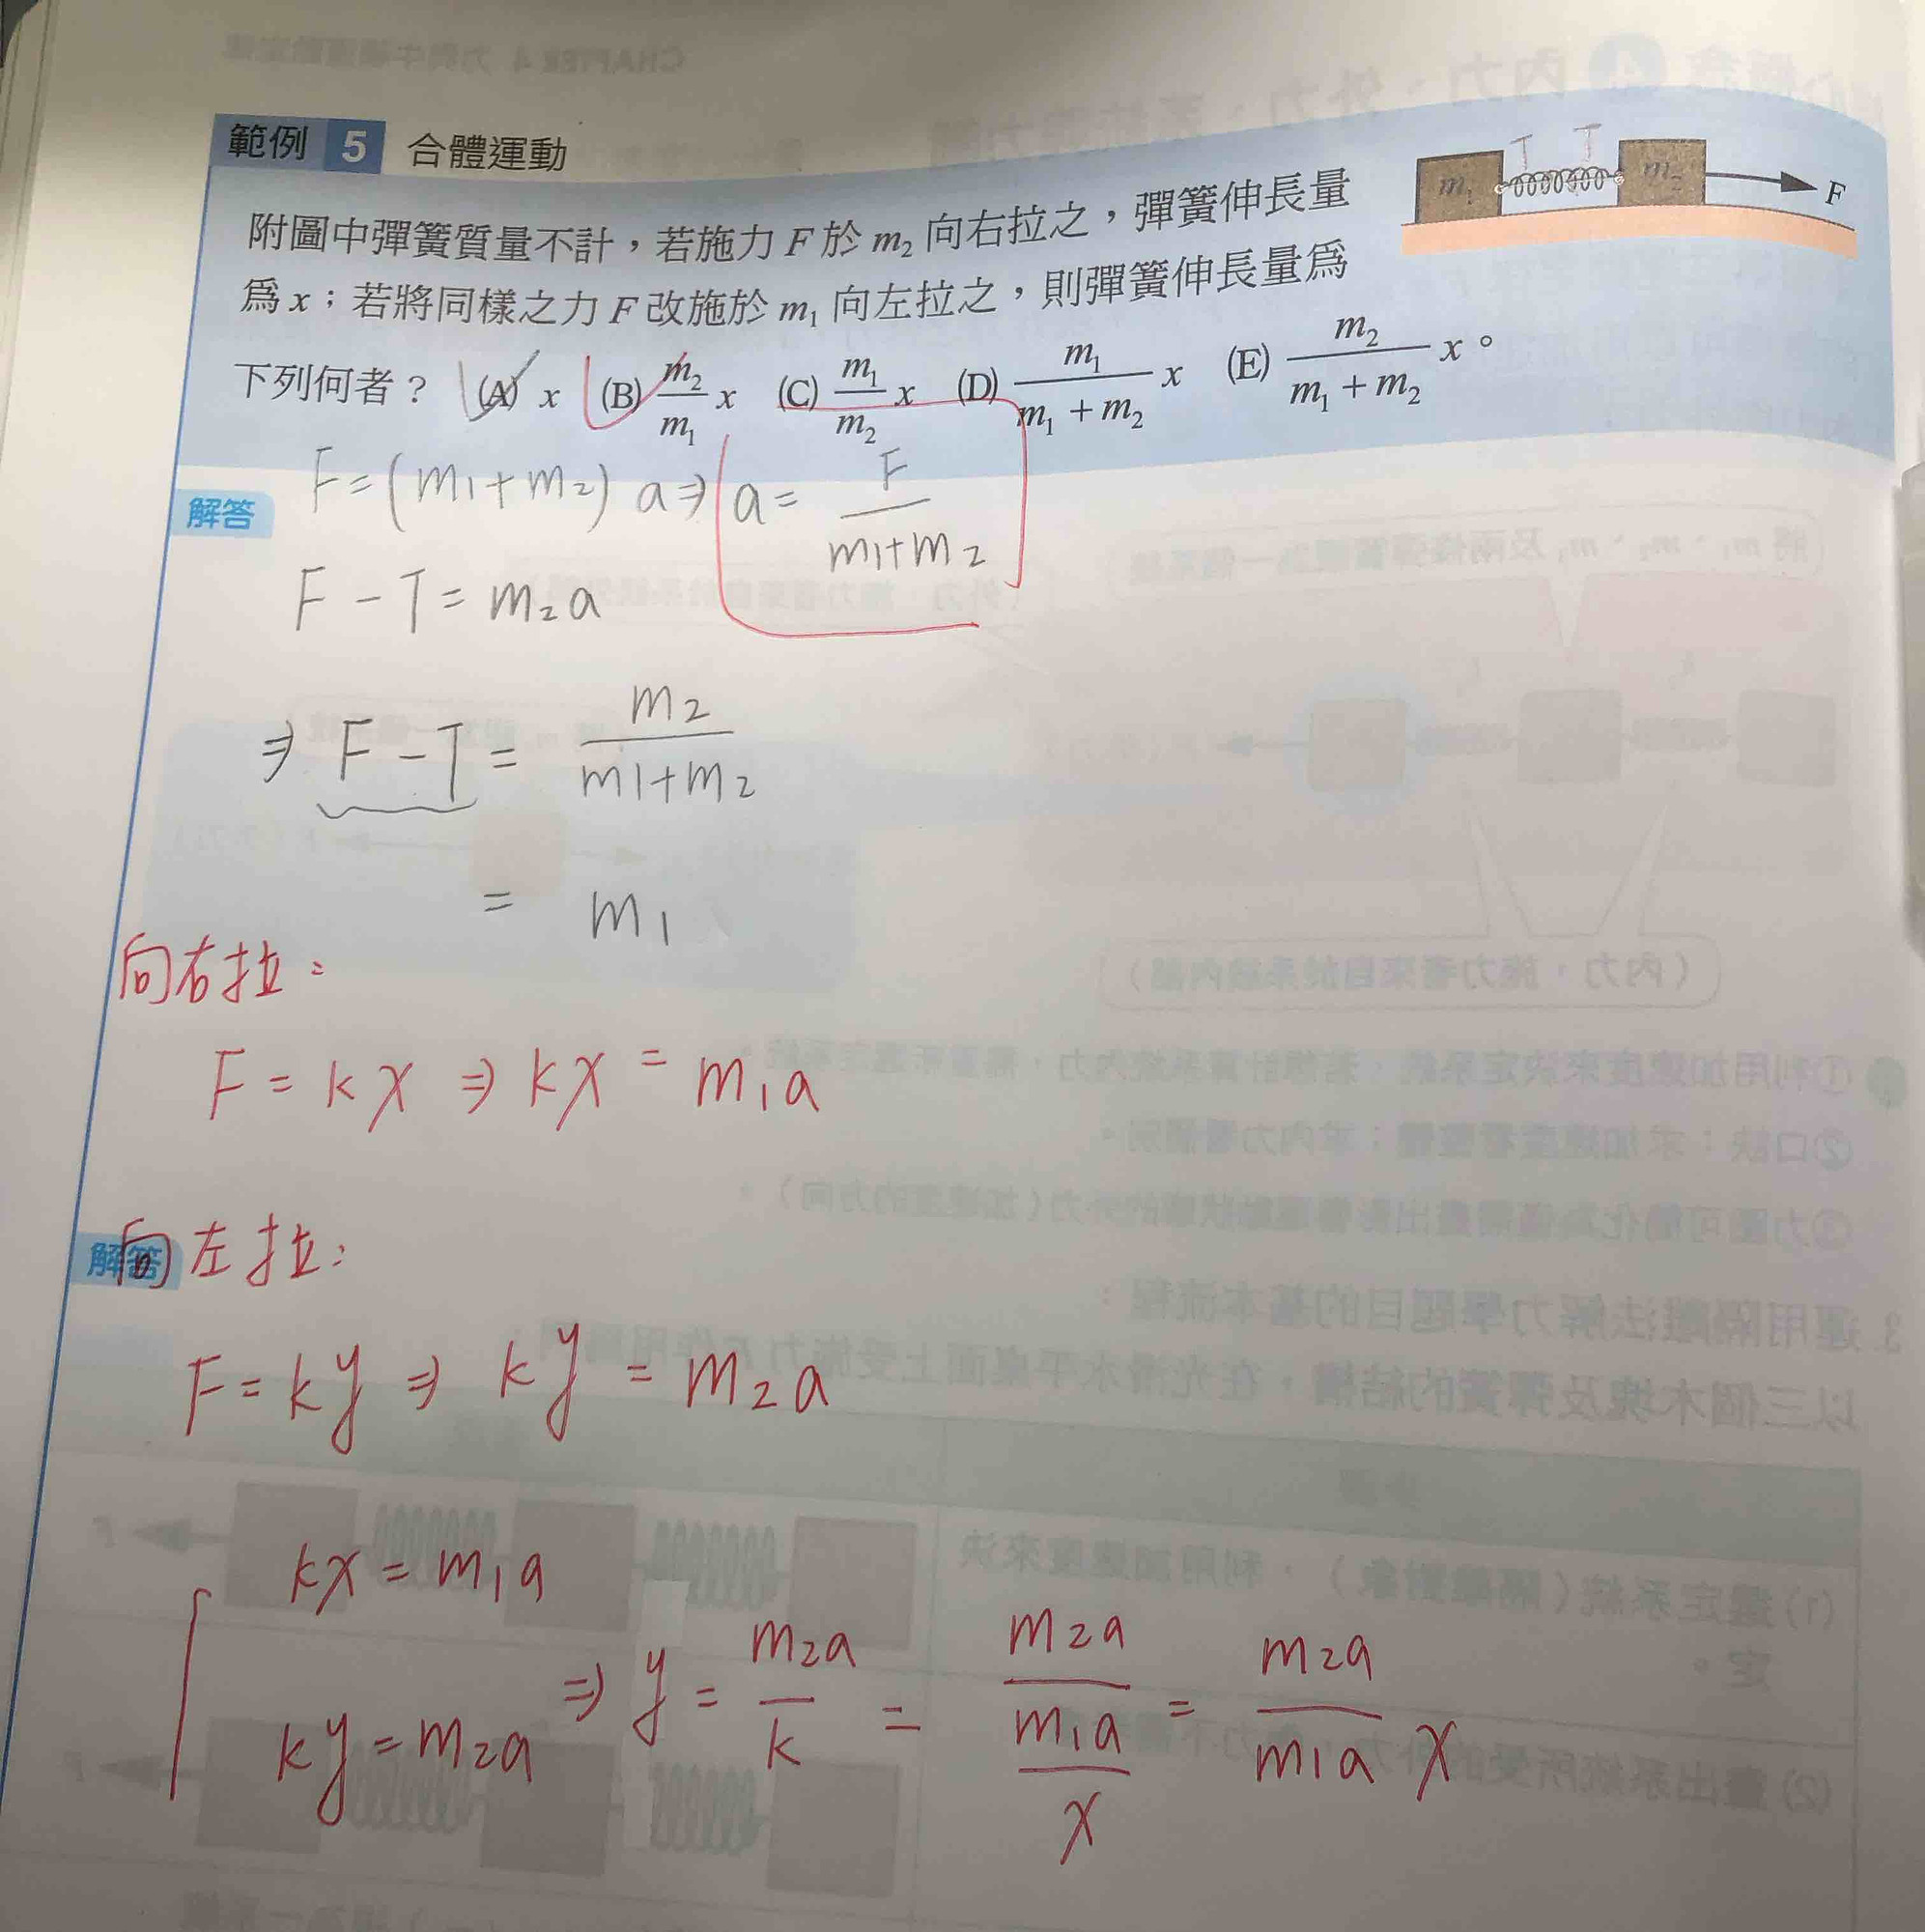 範例 5 合體運動
附圖中彈簧質量不計，若施力 F 於 m₂ 向右拉之，彈簧伸長量
爲 x；若將同樣之力 F 改施於 m₁ 向左拉之，則彈簧伸長量爲
下列何者？ (A) x (B) m₂/m₁ x (C) m₁/m₂ x (D) m₁/(m₁ + m₂) x (E) m₂/(m₁ + m₂) x。
m₁ T T m₂ F
解答
F = (m₁+m₂) a ⇒ a = F/(m₁+m₂)
F − T = m₂a
⇒ F − T = m₂/(m₁+m₂)
= m₁
向右拉：
F = kx ⇒ kx = m₁a
解答
向左拉：
F = ky ⇒ ky = m₂a
kx = m₁a
ky = m₂a ⇒ y = m₂a/k = m₂a/(m₁a/x) = m₂a/m₁a x